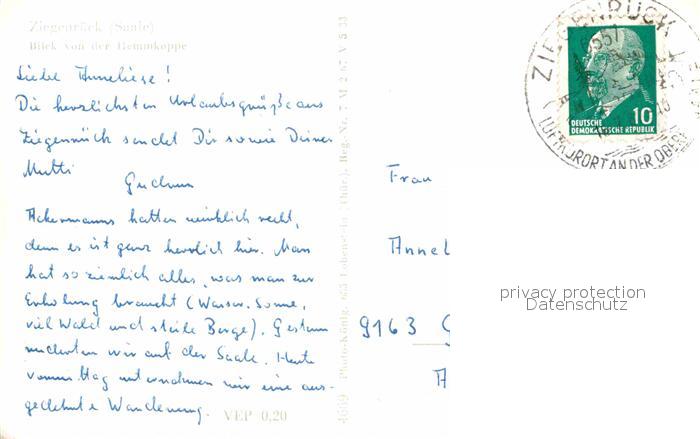 Ziegenrück (Saale)
Blick von der Hemmkoppe
Liebe Anneliese!
Die herzlichsten Urlaubsgrüße aus
Ziegenrück sendet Dir sowie Deiner
Mutti
Gudrun
Ackermanns hatten wirklich recht,
denn es ist ganz herrlich hier. Man
hat so ziemlich alles, was man zur
Erholung braucht (Wasser, Sonne,
viel Wald und steile Berge). Gestern
ruderten wir auf der Saale. Heute
vormittag unternahmen wir eine aus-
gedehnte Wanderung.
VEP 0,20
Photo-König, 685 Lobenstein (Thür.), Reg.-Nr. 7 M 2 67 V 5 33
ZIEGENRÜCK
6557
LUFTKURORT AN DER OBER
10
DEUTSCHE
DEMOKRATISCHE REPUBLIK
Frau
Annel
9163
privacy protection
Datenschutz